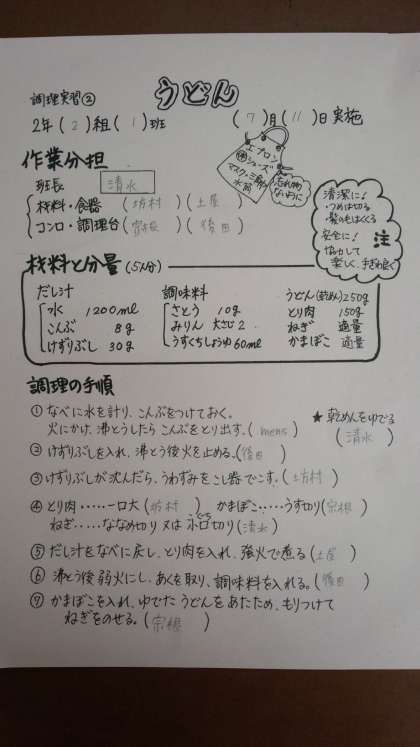 うどん
調理実習②
2年(2)組(1)班
(7)月(11)日実施
エプロン
シューズ
マスク・三角巾
水筒
忘れ物
ないように
作業分担
班長 清水
材料・食器 (坊村)(土屋)
コンロ・調理台(宗根)(後田)
清潔に!
・つめは切る
・髪の毛はくくる
安全に!
協力して
楽しく、手ぎわ良く
注
材料と分量(5人分)
だし汁
水 1200ml
こんぶ 8g
けずりぶし 30g
調味料
さとう 10g
みりん 大さじ2
うすくちしょうゆ 60ml
うどん(乾めん)250g
とり肉 150g
ねぎ 適量
かまぼこ 適量
調理の手順
①なべに水を計り、こんぶをつけておく。
火にかけ、沸とうしたらこんぶをとり出す。(mens)
★乾めんをゆでる
(清水)
②けずりぶしを入れ、沸とう後火を止める。(後田)
③けずりぶしが沈んだら、うわずみをこし器でこす。(坊村)
④とり肉……一口大(坊村) かまぼこ……うす切り(宗根)
ねぎ……ななめ切り又は小口切り(清水)
こぐち
⑤だし汁をなべに戻し、とり肉を入れ、強火で煮る(土屋)
⑥沸とう後弱火にし、あくを取り、調味料を入れる。(後田)
⑦かまぼこを入れ、ゆでたうどんをあたため、もりつけて
ねぎをのせる。(宗根)